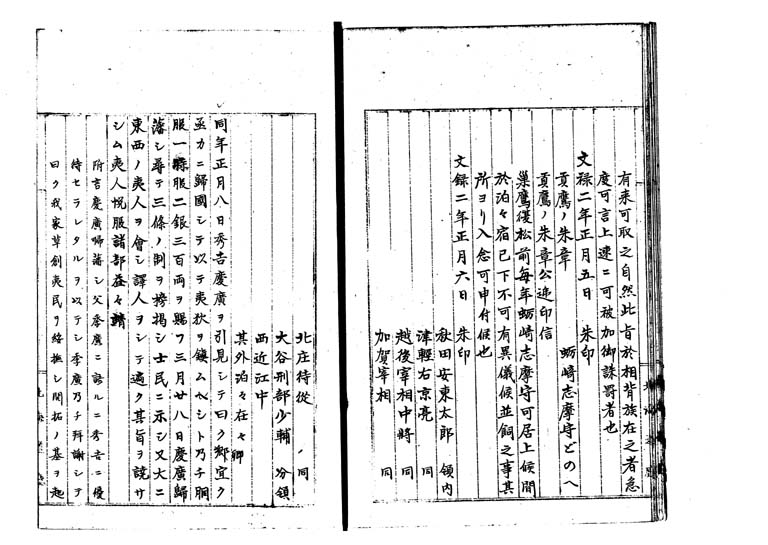 有来可取之自然此旨於相背族在之者急
度可言上速ニ可被加御誅罰者也
文禄二年正月五日 朱印
蛎崎志摩守どのへ
貢鷹ノ朱章
貢鷹ノ朱章公逓印信
巣鷹従松前毎年蛎崎志摩守可居上候間
於泊々宿已下不可有異儀候並飼之事其
所ヨリ入念可申付候也
文録二年正月六日 朱印
秋田安東太郎 領内
津軽右京亮 同
越後宰相中将 同
加賀宰相 同
北庄侍従 同
大谷刑部少輔 分領
西近江中
其外泊々在々
同年正月八日秀吉慶廣ヲ引見シテ曰ク郷宜ク
亟カニ歸國シテ以テ夷狄ヲ鎮ムベシト乃チ胴
服一縣服二銀三百両ヲ賜フ三月廿八日慶廣歸
藩シ尋テ三條ノ制ヲ榜掲シ士民ニ示シ又大ニ
東西ノ夷人ヲ會シ譯人ヲシテ遍ク其旨ヲ説サ
シム夷人悦服諸部益々靖
附言慶廣帰藩シ父季廣ニ語ルニ秀吉ニ優
待セラレタルヲ以テシ季廣乃チ拜謝シテ
曰ク我家草創夷民ヲ綏撫シ開拓ノ基ヲ起